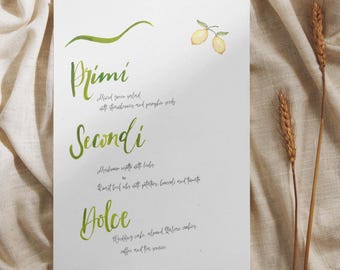 Primi
Mixed green salad
with strawberries and pumpkin seeds
Secondi
Mushroom risotto with herbs
or
Roast beef with potatoes, broccoli and tomato
Dolce
Wedding cake, almond Italian cookies
coffee and tea service